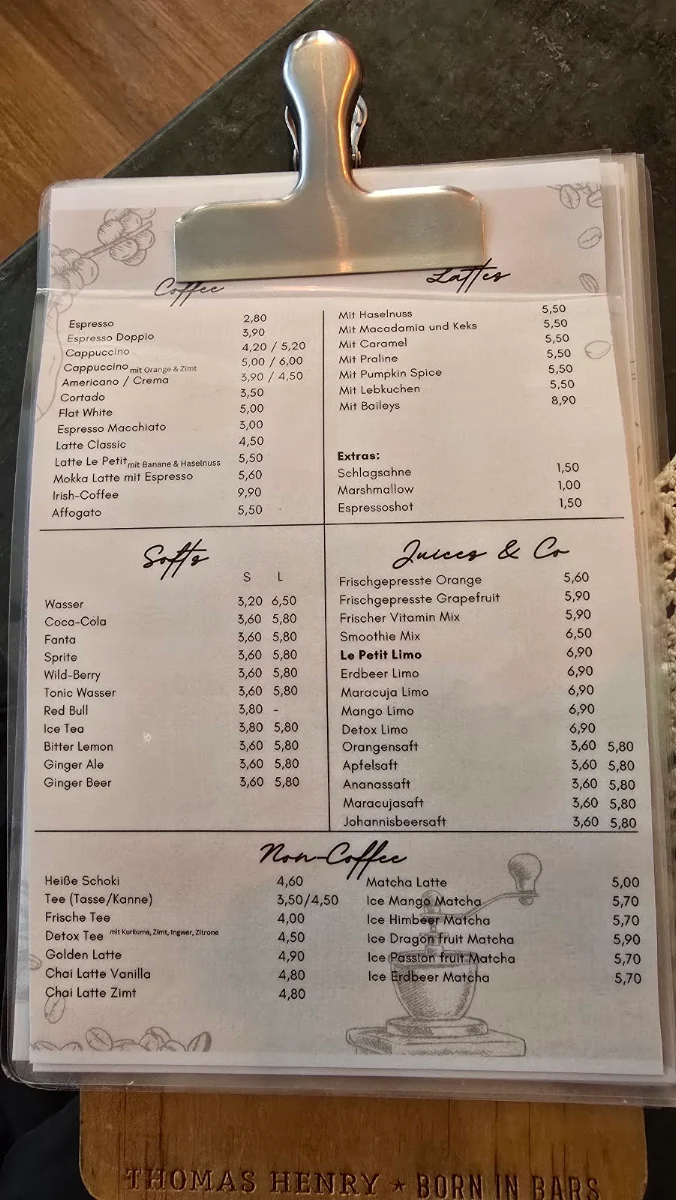 Coffee
Espresso 2,80
Espresso Doppio 3,90
Cappuccino 4,20 / 5,20
Cappuccino mit Orange & Zimt 5,00 / 6,00
Americano / Crema 3,90 / 4,50
Cortado 3,50
Flat White 5,00
Espresso Macchiato 3,00
Latte Classic 4,50
Latte Le Petit mit Banane & Haselnuss 5,50
Mokka Latte mit Espresso 5,60
Irish-Coffee 9,90
Affogato 5,50
Lattes
Mit Haselnuss 5,50
Mit Macadamia und Keks 5,50
Mit Caramel 5,50
Mit Praline 5,50
Mit Pumpkin Spice 5,50
Mit Lebkuchen 5,50
Mit Baileys 8,90
Extras:
Schlagsahne 1,50
Marshmallow 1,00
Espressoshot 1,50
Softs
S L
Wasser 3,20 6,50
Coca-Cola 3,60 5,80
Fanta 3,60 5,80
Sprite 3,60 5,80
Wild-Berry 3,60 5,80
Tonic Wasser 3,60 5,80
Red Bull 3,80 -
Ice Tea 3,80 5,80
Bitter Lemon 3,60 5,80
Ginger Ale 3,60 5,80
Ginger Beer 3,60 5,80
Juices & Co
Frischgepresste Orange 5,60
Frischgepresste Grapefruit 5,90
Frischer Vitamin Mix 5,90
Smoothie Mix 6,50
Le Petit Limo 6,90
Erdbeer Limo 6,90
Maracuja Limo 6,90
Mango Limo 6,90
Detox Limo 6,90
Orangensaft 3,60 5,80
Apfelsaft 3,60 5,80
Ananassaft 3,60 5,80
Maracujasaft 3,60 5,80
Johannisbeersaft 3,60 5,80
Non-Coffee
Heiße Schoki 4,60
Tee (Tasse/Kanne) 3,50/4,50
Frische Tee 4,00
Detox Tee mit Kurkuma, Zimt, Ingwer, Zitrone 4,50
Golden Latte 4,90
Chai Latte Vanilla 4,80
Chai Latte Zimt 4,80
Matcha Latte 5,00
Ice Mango Matcha 5,70
Ice Himbeer Matcha 5,70
Ice Dragon fruit Matcha 5,90
Ice Passion fruit Matcha 5,70
Ice Erdbeer Matcha 5,70
THOMAS HENRY ★ BORN IN BARS